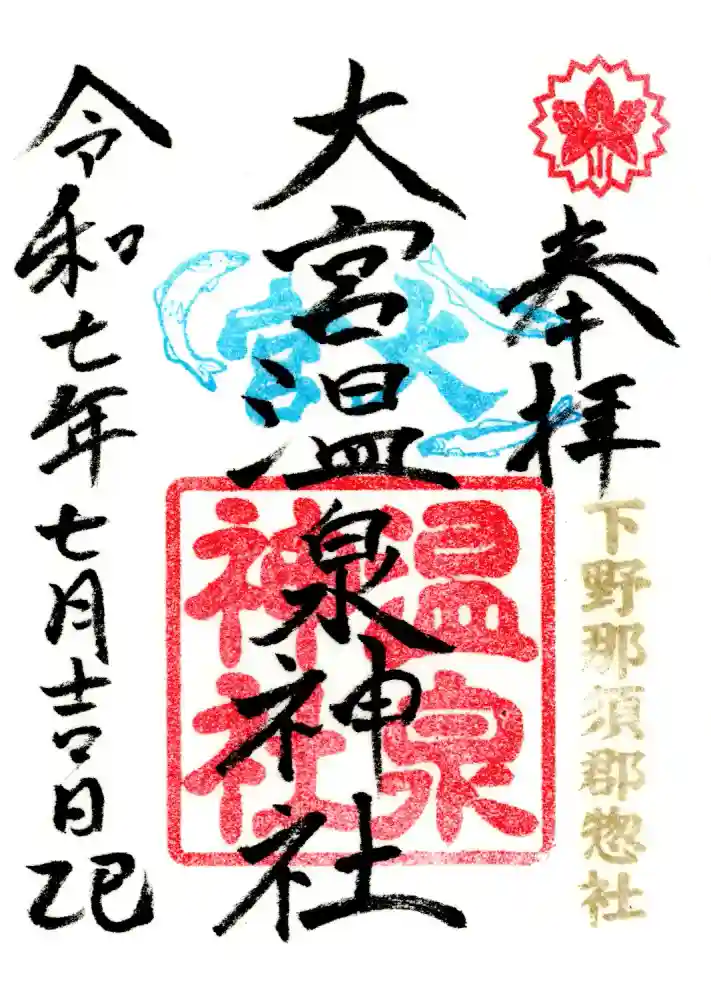 奉拝
下野那須郡惣社
大宮温泉神社
大宮
温泉
神社
令和七年七月吉日
乙巳